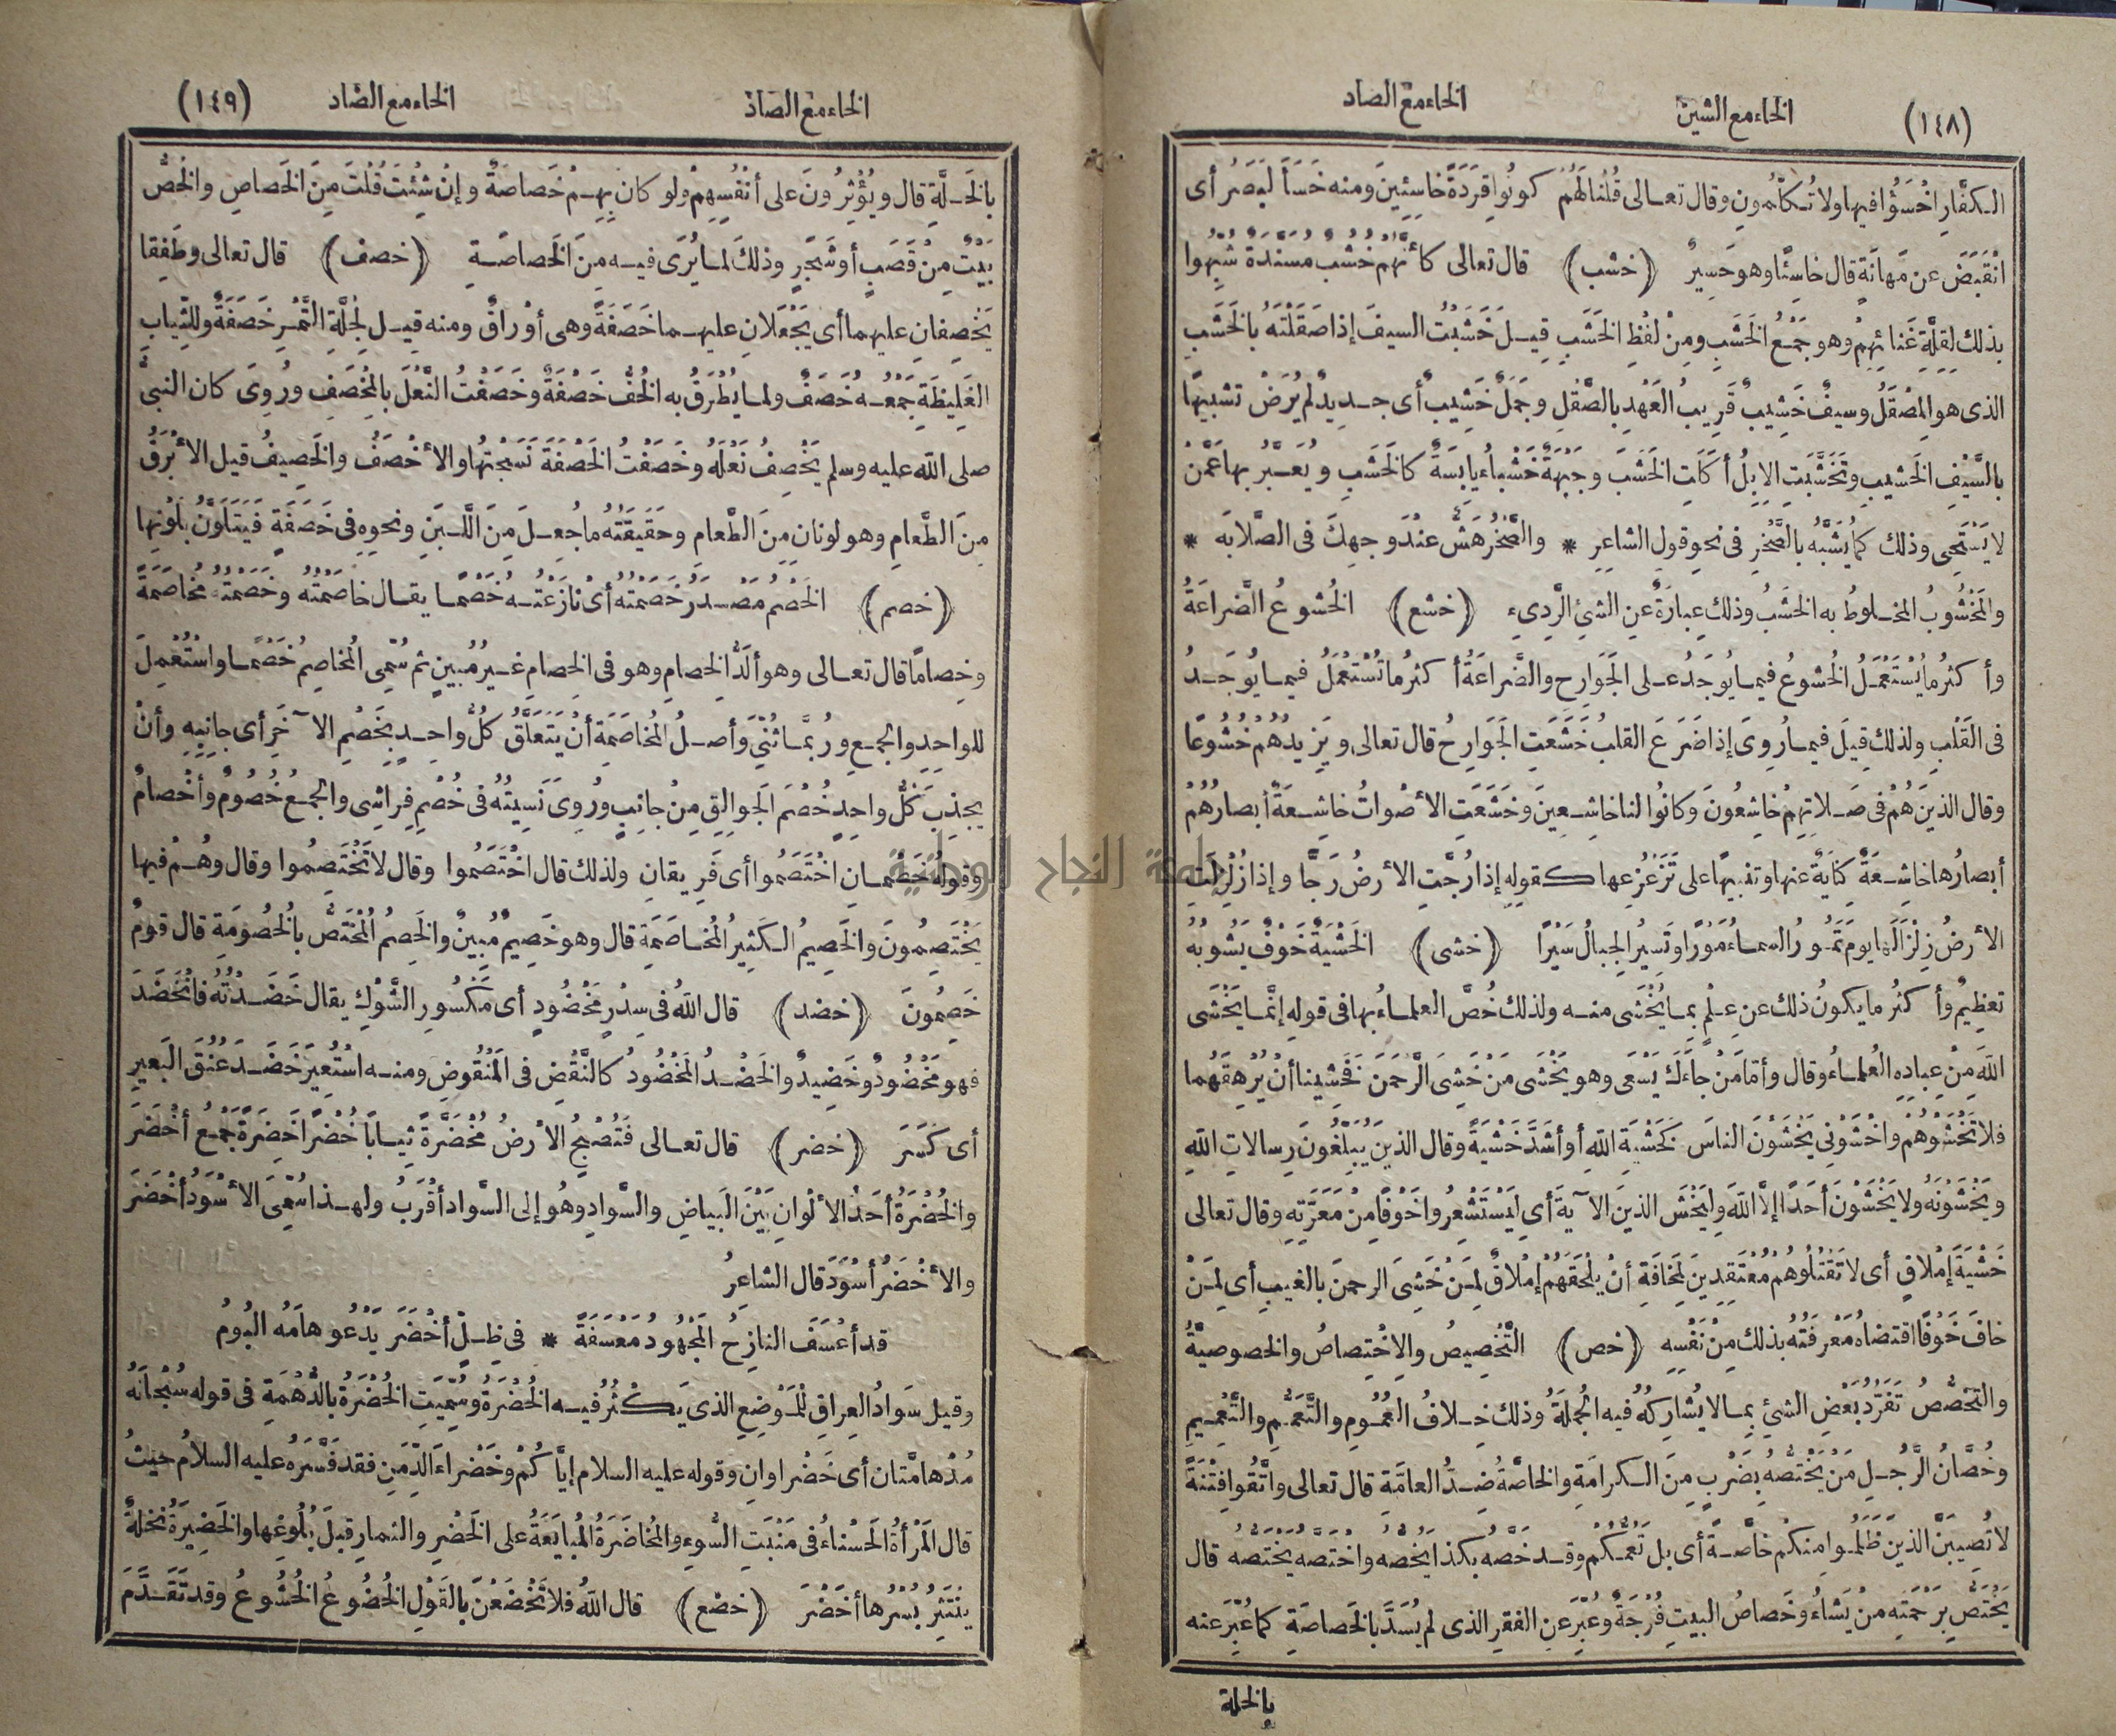 (١٤٨) الخاء مع الشين الخاء مع الصاد
الكفَّارِ اخْسَؤُا فيها ولا تُكَلِّمُونِ وقال تعالى قُلْنَا لَهُمْ كونُوا قِرَدَةً خاسِئِينَ ومنه خَسَأَ البَصَرُ أى
انْقَبَضَ عن مَهانَةٍ قال خاسِئًا وهو حَسِيرٌ (خشب) قال تعالى كأنَّهُمْ خُشُبٌ مُسَنَّدَةٌ شُبِّهُوا
بذلك لِقِلَّةِ غَنائِهِمْ وهو جَمْعُ الخَشَبِ ومِنْ لَفْظِ الخَشَبِ قِيلَ خَشَبْتُ السيفَ إذا صَقَلْتَهُ بالخَشَبِ
الذى هو المِصْقَلُ وسيفٌ خَشِيبٌ قَرِيبُ العَهْدِ بالصَّقْلِ وجَمَلٌ خَشِيبٌ أى جديدٌ لم يُرَضْ تشبيهًا
بالسَّيْفِ الخَشيبِ وتَخَشَّبَتِ الإبِلُ أكَلَتِ الخَشَبَ وجَبْهَةٌ خَشْباءُ يابِسَةٌ كالخَشَبِ ويُعَبَّرُ بها عَمَّنْ
لا يَسْتَحِى وذلك كما يُشَبَّهُ بالصَّخْرِ فى نحوِ قولِ الشاعِرِ * والصَّخْرُ هَشٌّ عنْدَ وجهِكَ فى الصَّلابَه *
والمَخْشُوبُ المخلوطُ به الخَشَبُ وذلك عبارَةٌ عنِ الشئِ الرَّدِىءِ (خشع) الخُشوعُ الضَّراعَةُ
وأكثرُ ما يُسْتَعْمَلُ الخُشوعُ فيما يُوجَدُ على الجَوارِحِ والضَّراعَةُ أكثرُ ما تُسْتَعْمَلُ فيما يُوجَدُ
فى القَلْبِ ولذلك قِيلَ فيما رُوِىَ إذا ضَرَعَ القلبُ خَشَعَتِ الجَوارِحُ قال تعالى ويَزِيدُهُمْ خُشُوعًا
وقال الذينَ هُمْ فى صَلاتِهِمْ خاشِعُونَ وكانُوا لنا خاشِعِينَ وخَشَعَتِ الأصْواتُ خاشِعَةً أبصارُهُمْ
أبصارُها خاشِعَةٌ كِنايَةٌ عنها وتنبيهًا على تَزَعْزُعِها كقولِهِ إذا رُجَّتِ الأرضُ رَجًّا وإذا زُلْزِلَتِ
الأرضُ زِلْزَالَهَا يومَ تَمُورُ السماءُ مَوْرًا وتَسِيرُ الجِبالُ سَيْرًا (خشى) الخَشْيَةُ خَوْفٌ يَشُوبُهُ
تعظِيمٌ وأكثرُ ما يكونُ ذلك عن عِلْمٍ بما يُخْشَى منه ولذلك خُصَّ العلماءُ بها فى قوله إنَّما يَخْشَى
اللهَ مِنْ عِبادِهِ العُلماءُ وقال وأمَّا مَنْ جاءَكَ يَسْعَى وهو يَخْشَى مَنْ خَشِىَ الرَّحْمَنَ فَخَشِينا أنْ يُرْهِقَهُما
فلا تَخْشَوْهُمْ واخْشَوْنِى يَخْشَوْنَ الناسَ كَخَشْيَةِ اللهِ أو أشَدَّ خَشْيَةً وقال الذينَ يُبَلِّغُونَ رِسالاتِ اللهِ
ويَخْشَوْنَهُ ولا يَخْشَوْنَ أحَدًا إلاَّ اللهَ ولْيَخْشَ الذينَ الآيةَ أى لِيَسْتَشْعِرُوا خَوْفًا مِنْ مَعَرَّتِهِ وقال تعالى
خَشْيَةَ إمْلاقٍ أى لا تَقْتُلُوهُمْ مُعْتَقِدِينَ لِمَخافَةِ أنْ يَلْحَقَهُمْ إمْلاقٌ لِمَنْ خَشِىَ الرحمنَ بالغيبِ أى لِمَنْ
خافَ خَوْفًا اقتضاهُ مَعْرِفَتُهُ بذلك مِنْ نَفْسِهِ (خص) التَّخْصِيصُ والاخْتِصاصُ والخصوصيَّةُ
والتخَصُّصُ تَفَرُّدُ بَعْضِ الشئِ بما لا يُشارِكُهُ فيه الجُمْلَةُ وذلك خِلافُ العُمُومِ والتَّعَمُّمِ والتَّعْمِيمِ
وخُصَّانُ الرَّجُلِ مَنْ يَخْتَصُّهُ بِضَرْبٍ مِنَ الكرامَةِ والخاصَّةُ ضِدُّ العامَّةِ قال تعالى واتَّقُوا فِتْنَةً
لا تُصِيبَنَّ الذينَ ظَلَمُوا مِنكُم خاصَّةً أى بل تَعُمُّكُمْ وقد خَصَّهُ بكذا يَخُصُّهُ واخْتَصَّهُ يَخْتَصُّهُ قال
يَخْتَصُّ بِرَحْمَتِهِ مَنْ يَشاءُ وخَصاصُ البيتِ فُرْجَةٌ وعُبِّرَ عنِ الفقرِ الذى لم يُسَدَّ بالخَصاصَةِ كما عُبِّرَ عنه
بالخلة
الخاء مع الصاد الخاء مع الضاد (١٤٩)
بالخَلَّةِ قال ويُؤْثِرُونَ على أنفُسِهِمْ ولو كان بِهِمْ خَصاصَةٌ وإنْ شِئْتَ قُلْتَ مِنَ الخَصاصِ والخُصُّ
بَيْتٌ مِنْ قَصَبٍ أو شَجَرٍ وذلكَ لما يُرَى فيه مِنَ الخَصاصَةِ (خصف) قال تعالى وطَفِقا
يَخْصِفانِ عليهما أى يَجْعَلانِ عليهما خَصَفَةً وهى أوْراقٌ ومنه قيل لِجُلَّةِ التَّمْرِ خَصَفَةٌ وللثِّيابِ
الغَلِيظَةِ جَمْعُهُ خُصَفٌ ولما يُطْرَقُ به الخُفُّ خَصْفَةٌ وخَصَفْتُ النَّعْلَ بالمِخْصَفِ ورُوِىَ كان النبىُّ
صلى الله عليه وسلم يَخْصِفُ نَعْلَهُ وخَصَفْتُ الخَصْفَةَ نَسَجْتُها والأخْصَفُ والخَصِيفُ قيل الأبْرَقُ
مِنَ الطَّعامِ وهو لونان مِنَ الطَّعامِ وحَقيقَتُهُ ما جُعِلَ مِنَ اللَّبَنِ ونحوِهِ فى خَصَفَةٍ فيَتَلَوَّنُ بلَوْنِها
(خصم) الخَصْمُ مَصْدَرُ خَصَمْتُه أى نازَعْتُهُ خَصْمًا يقال خاصَمْتُهُ وخَصَمْتُهُ مُخاصَمَةً
وخِصامًا قال تعالى وهو ألَدُّ الخِصامِ وهو فى الخِصامِ غيرُ مُبينٍ ثم سُمِّىَ المُخاصِمُ خَصْمًا واسْتُعْمِلَ
للواحِدِ والجمعِ ورُبَّما ثُنِّىَ وأصلُ المُخاصَمَةِ أنْ يَتَعَلَّقَ كُلُّ واحِدٍ بخَصْمِ الآخَرِ أى جانِبِهِ وأنْ
يجذِبَ كُلُّ واحِدٍ خُصْمَ الجَوالِقِ مِنْ جانِبٍ ورُوِىَ نَسِيتُهُ فى خُصْمِ فِراشِى والجمعُ خُصُومٌ وأخْصامٌ
وقولُهُ خَصْمانِ اخْتَصَمُوا أى فَرِيقانِ ولذلك قال اخْتَصَمُوا وقال لا تَخْتَصِمُوا وقال وهُمْ فيها
يَخْتَصِمُونَ والخَصِيمُ الكَثِيرُ المُخاصَمَةِ قال وهو خَصِيمٌ مُبِينٌ والخَصِمُ المُخْتَصُّ بالخُصُومَةِ قال قومٌ
خَصِمُونَ (خضد) قال اللهُ فى سِدْرٍ مَخْضُودٍ أى مَكْسُورِ الشَّوْكِ يقال خَضَدْتُهُ فانْخَضَدَ
فهو مَخْضُودٌ وخَضِيدٌ والخَضْدُ المَخْضُودُ كالنَّقْضِ فى المَنْقُوضِ ومنه اسْتُعِيرَ خَضَدَ عُنُقَ البَعيرِ
أى كَسَرَ (خضر) قال تعالى فَتُصْبِحُ الأرضُ مُخْضَرَّةً ثِيابًا خُضْرًا خَضِرَةٌ جمعُ أخْضَرَ
والخُضْرَةُ أحَدُ الألْوانِ بَيْنَ البَياضِ والسَّوادِ وهُو إلى السَّوادِ أقْرَبُ ولهذا سُمِّىَ الأسْوَدُ أخْضَرَ
والأخْضَرُ أسْوَدَ قال الشاعِرُ
قد أعْسَفَ النازِحُ المَجْهُودُ مَعْسَفَةً * فى ظِلِّ أخْضَرَ يَدْعُو هامَهُ البُومُ
وقيل سَوادُ العِراقِ لِلْمَوْضِعِ الذى يَكْثُرُ فيه الخُضْرَةُ وسُمِّيَتِ الخُضْرَةُ بالدُّهْمَةِ فى قوله سُبْحانَهُ
مُدْهامَّتان أى خَضْراوانِ وقوله عليه السلام إيَّاكُمْ وخَضْراءَ الدِّمَنِ فقد فَسَّرَهُ عليه السلامُ حيثُ
قال المَرْأةُ الحَسْناءُ فى مَنْبَتِ السُّوءِ والمُخاضَرَةُ المُبايَعَةُ على الخُضَرِ والثمارِ قبلَ بُلُوغِها والخَضِيرَةُ نَخْلَةٌ
يَنْتَثِرُ بُسْرُها أخْضَرَ (خضع) قال اللهُ فلا تَخْضَعْنَ بالقَوْلِ الخُضُوعُ الخُشُوعُ وقد تَقَدَّمَ